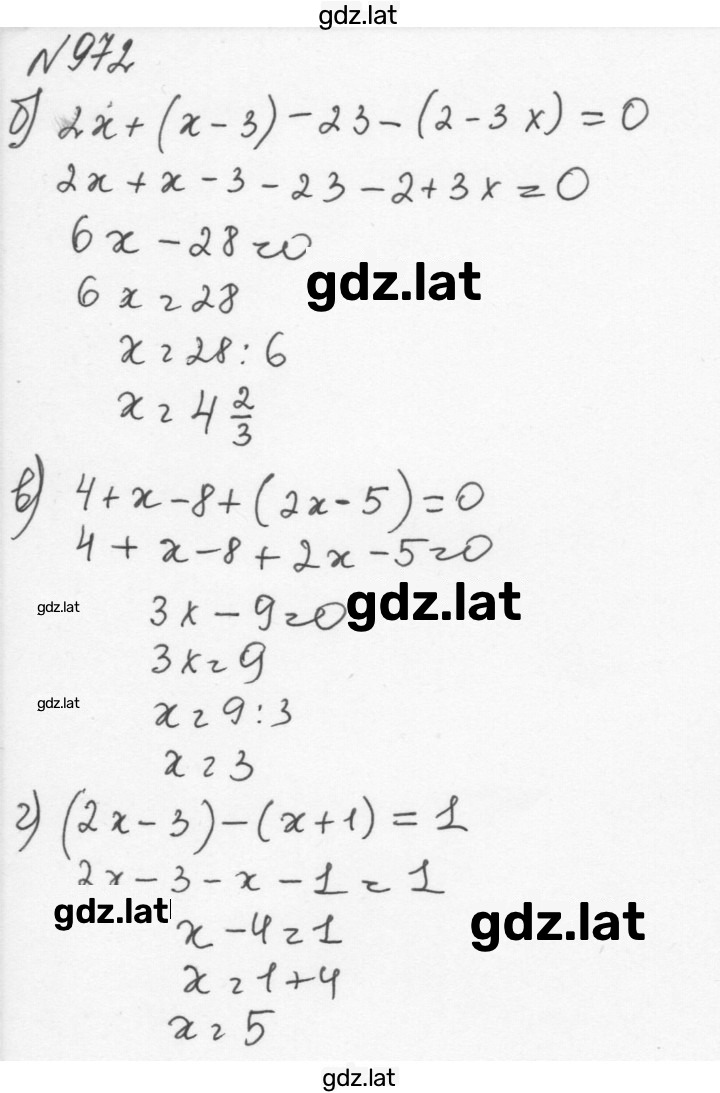 gdz.lat
№972
б) 2x + (x - 3) - 23 - (2 - 3x) = 0
2x + x - 3 - 23 - 2 + 3x = 0
6x - 28 = 0
6x = 28
gdz.lat
x = 28 : 6
x = 4 2/3
в) 4 + x - 8 + (2x - 5) = 0
4 + x - 8 + 2x - 5 = 0
gdz.lat
3x - 9 = 0
gdz.lat
3x = 9
gdz.lat
x = 9 : 3
x = 3
г) (2x - 3) - (x + 1) = 1
2x - 3 - x - 1 = 1
gdz.lat
x - 4 = 1
gdz.lat
x = 1 + 4
x = 5
gdz.lat